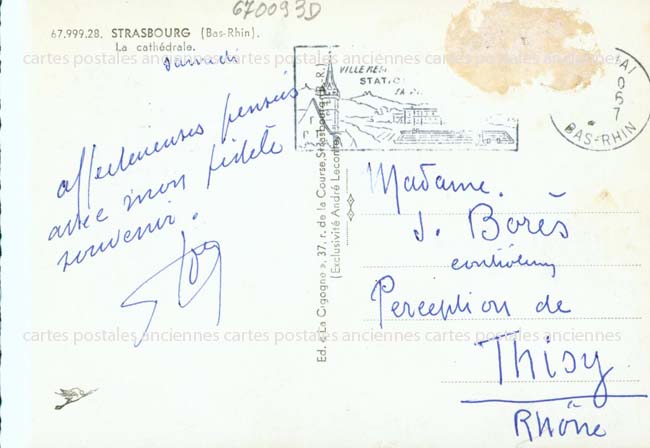 670093D
67.999.28. STRASBOURG (Bas-Rhin).
La cathédrale.
Samedi
affectueuses pensées
avec mon fidèle
souvenir.
cartes postales anciennes cartes postales anciennes cartes postales anciennes
VILLE
STATIO
BAS-RHIN
Ed. « La Cigogne », 37, r. de la Course, Strasbourg (B.-R.)
(Exclusivité André Leconte)
Madame.
J. Borès
Perception de
Thizy
Rhône
cartes postales anciennes cartes postales anciennes cartes postales anciennes